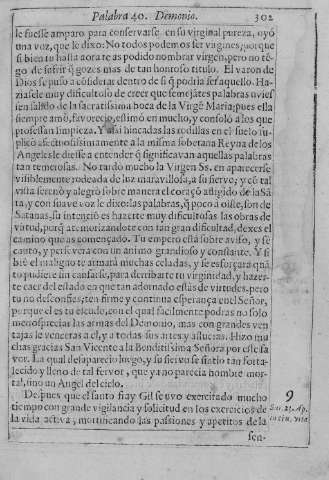 Palabra 40. Demonio. 302
le fuesse amparo para conservarse en su virginal pureza, oyó
una voz, que le dixo: No todos podemos ser virgines; porque
si bien tu hasta aora te as podido nombrar virgen, pero no tē-
go de sufrir q̃ gozes mas de tan honroso titulo. El varon de
Dios se puso a cōsiderar dentro de si q̃ podria ser aquello. Ha-
ziasele muy dificultoso de creer que semejātes palabras uvies
sen salido de la sacratissima boca de la Virgē Maria; pues ella
siempre amò, favoreciò, estimò en mucho, y consolò a los que
professan limpieza. Y assi hincadas las rodillas en el suelo su-
plicò afectuosissimamente a la misma soberana Reyna de los
Angeles le diesse a entender q̃ significavan aquellas palabras
tan temerosas. No tardò mucho la Virgen SS. en aparecerse
visiblemente rodeada de luz maravillosa, a su siervo; y cō tal
vista serenò y alegrò sobre manera el coraçō afligido de
y con suave voz le dixo: las palabras, q̃ poco á oiste, son de
Satanas, su intentiō es hazerte muy dificultosas las obras de
virtud, porq̃ atemorizandote con tan gran dificultad, dexes el
camino que as começado. Tu empero està sobre aviso, y se
cauto, y persevera con un animo grandioso y constante. Y si
biē el maligno te armarà muchas celadas, y se esforçara quā
to pudiere sin cansarse, para derribarte tu virginidad, y hazer-
te caer del estado en que tan adornado estàs de virtudes, pero
tu no desconfies, ten firme y continua esperança en el Señor,
porque el es tu escudo, con el qual facilmente podras no solo
menospreciar las armas del Demonio, mas con grandes ven
tajas le venceras a el, y a todas sus artes y astucias. Hizo mu
chas gracias San Vicente a la Benditissima Señora por este fa
vor. La qual desapareciò luego, y su siervo se sintio tan forta-
lecido y lleno de tal fervor, que ya no parecia hombre mor-
tal, sino un Angel del cielo.
Despues que el santo fray Gil se uvo exercitado mucho
tiempo con grande vigilancia y solicitud en los exercicios de
la vida activa, mortificando las passiones y apetitos de la
sen-
9
in eius vita